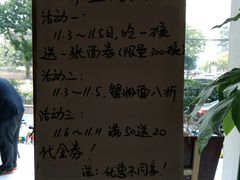 活动一:
11.3～11.5日,吃一碗
送一张面券(限量300碗)
活动二:
11.3～11.5,蟹粉面八折
活动三:
11.6～11.11 满50送20
代金券!
注:优惠不同享!